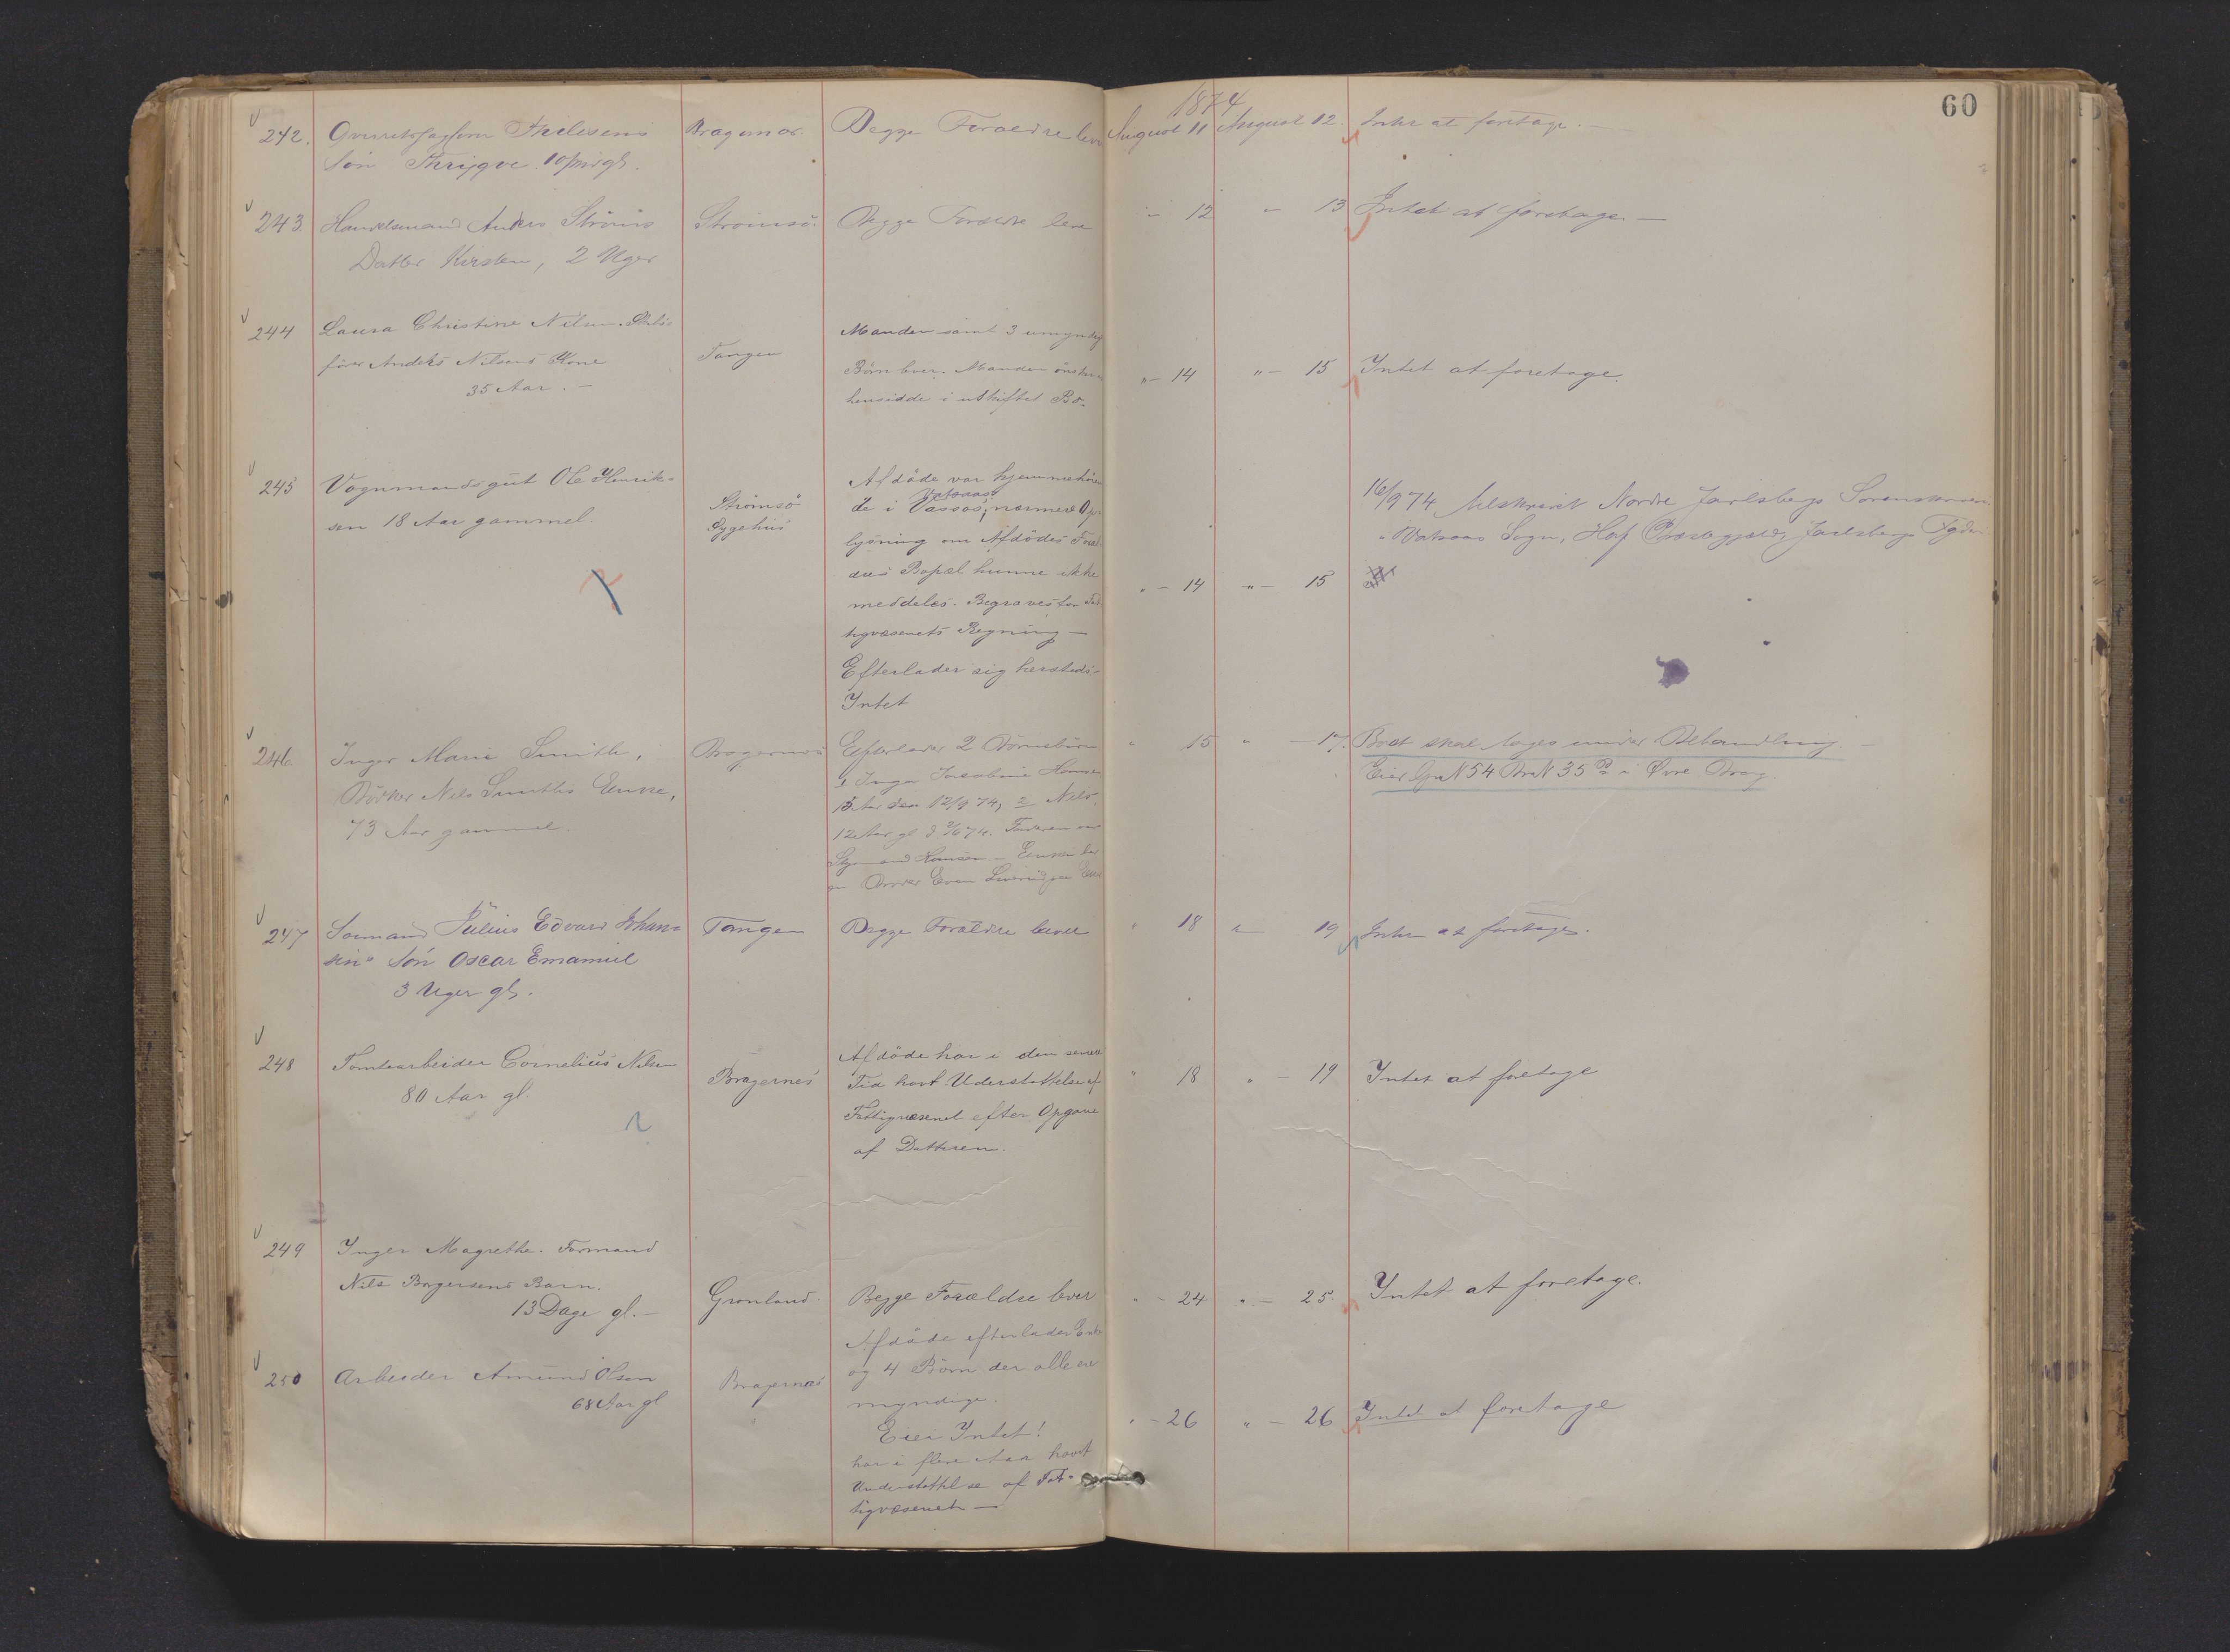 60
1874
242. Søn Thrygve. 10 gl. Bragernæs Begge Forældre leve August 11 August 12. Intet at foretage. —
243 Handelsmand Anders Ströms Strömsö. Begge Forældre leve " 12 " 13 Intet at foretage. —
Datter Kirsten, 2 Uger
244 Laura Christine Nilsen. Skibs-
fører Anders Nilsens Kone
35 Aar. —
Tangen
Manden samt 3 umyndige
Börn lever. Manden önsker at
hensidde i uskiftet Bo.
" — 14 " — 15 Intet at foretage.
245 Vognmandsgut Ole Henrik-
sen 18 Aar gammel.
Strömsö
Sygehus
Afdöde var hjemmehören
de i Vassaas, nærmere Op-
Vatsaas
lysning om Afdödes Foræl-
dres Bopæl kunne ikke
meddeles. Begraves for Fat-
tigvæsenets Regning —
Efterlader sig hersteds
Intet
" — 14 " — 15
16/9 74 tilskrevet Nordre Jarlsbergs Sorenskriver.
Vatsaas Sogn, Hof Præstegjæld, Jarlsbergs Fgdri
246. Inger Marie Smith,
Bödker Nels Smiths Enke,
73 Aar gammel.
Bragernæs
Efterlader 2 Börnebörn
1 Inga Jacobine Hansen
15 Aar den 12/9 74, 2 Nils
12 Aar gl. Faderen var
Styrmand Hansen. — Enken har
en Broder Even
" 15 " — 17. Boet skal tages under Behandling. —
Eier Gr N 54 Br N 35 i Øvre Brag.
247 Sømand Julius Edvard Johan-
sens Sön Oscar Emanuel
3 Uger gl.
Tangen Begge Forældre lever " 18 " 19 Intet at foretage.
248 Tomtearbeider Cornelius Nilsen
80 Aar gl.
Bragernes
Afdöde har i den senere
Tid havt Understøttelse af
Fattigvæsenet efter Opgave
af Datteren.
" 18 " — 19 Intet at foretage
249 Inger Magrethe. Formand
Nils Borgersens Barn.
13 Dage gl. —
Grønland. Begge Forældre lever " — 24 " — 25. Intet at foretage.
250 Arbeider Amund Olsen
68 Aar gl
Bragernæs
Afdöde efterlader Enke
og 4 Börn der alle ere
myndige.
Eier Intet!
har i flere Aar havt
Understøttelse af Fat-
tigvæsenet —
" — 26 " — 26 Intet at foretage